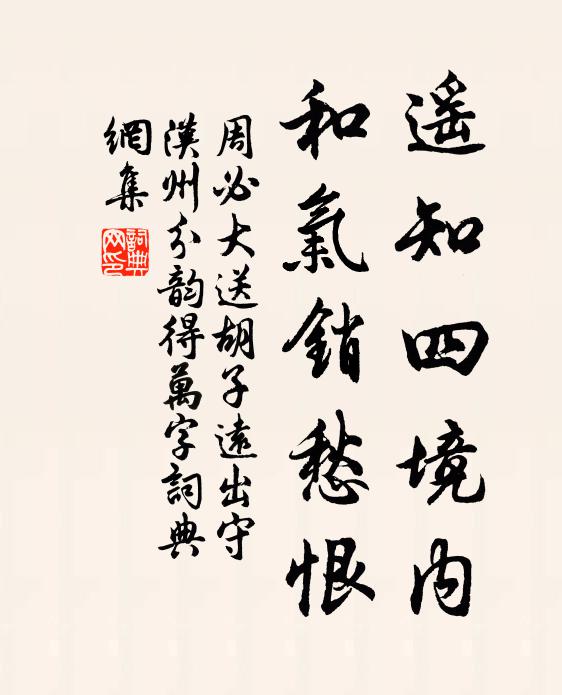 遥知四境内
和氣銷愁恨
周必大送胡子遠出守
漢州分韵得萬字詞典
網集
詞典
网印